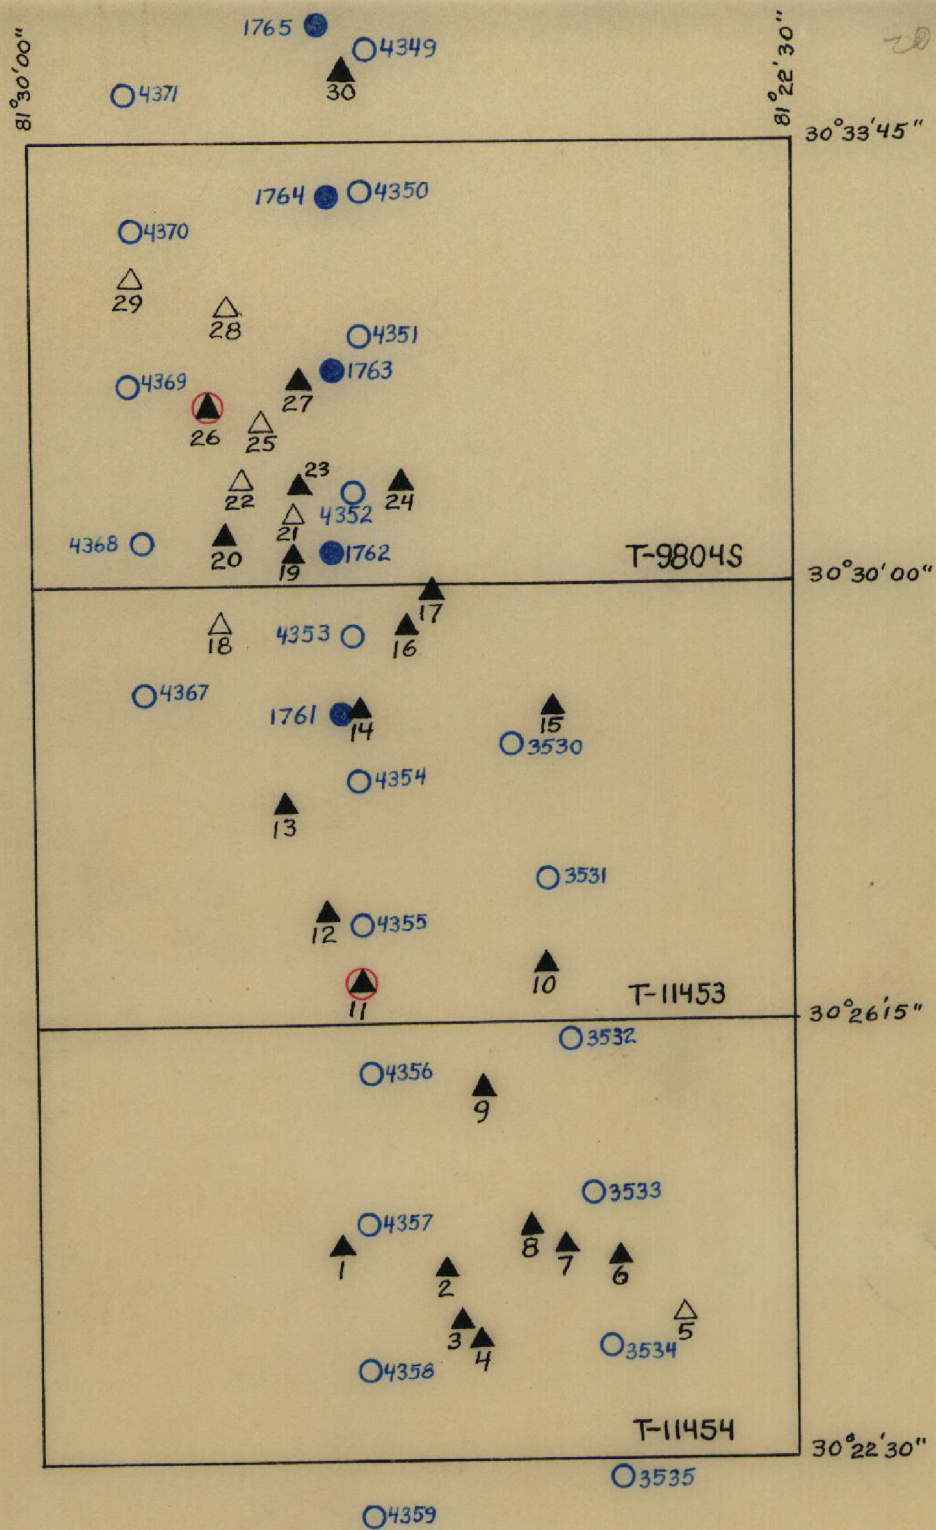 1765
4349
20
81°30'00"
81°22'30"
30
4371
30°33'45"
1764
4350
4370
29
28
4351
1763
4369
27
26
25
23
22
24
4352
21
4368
20
19
1762
T-9804S
30°30'00"
17
18
4353
16
4367
1761
14
15
3530
4354
13
3531
12
4355
10
11
T-11453
30°26'15"
3532
4356
9
3533
4357
8
7
6
1
2
5
3
4
3534
4358
T-11454
30°22'30"
3535
4359